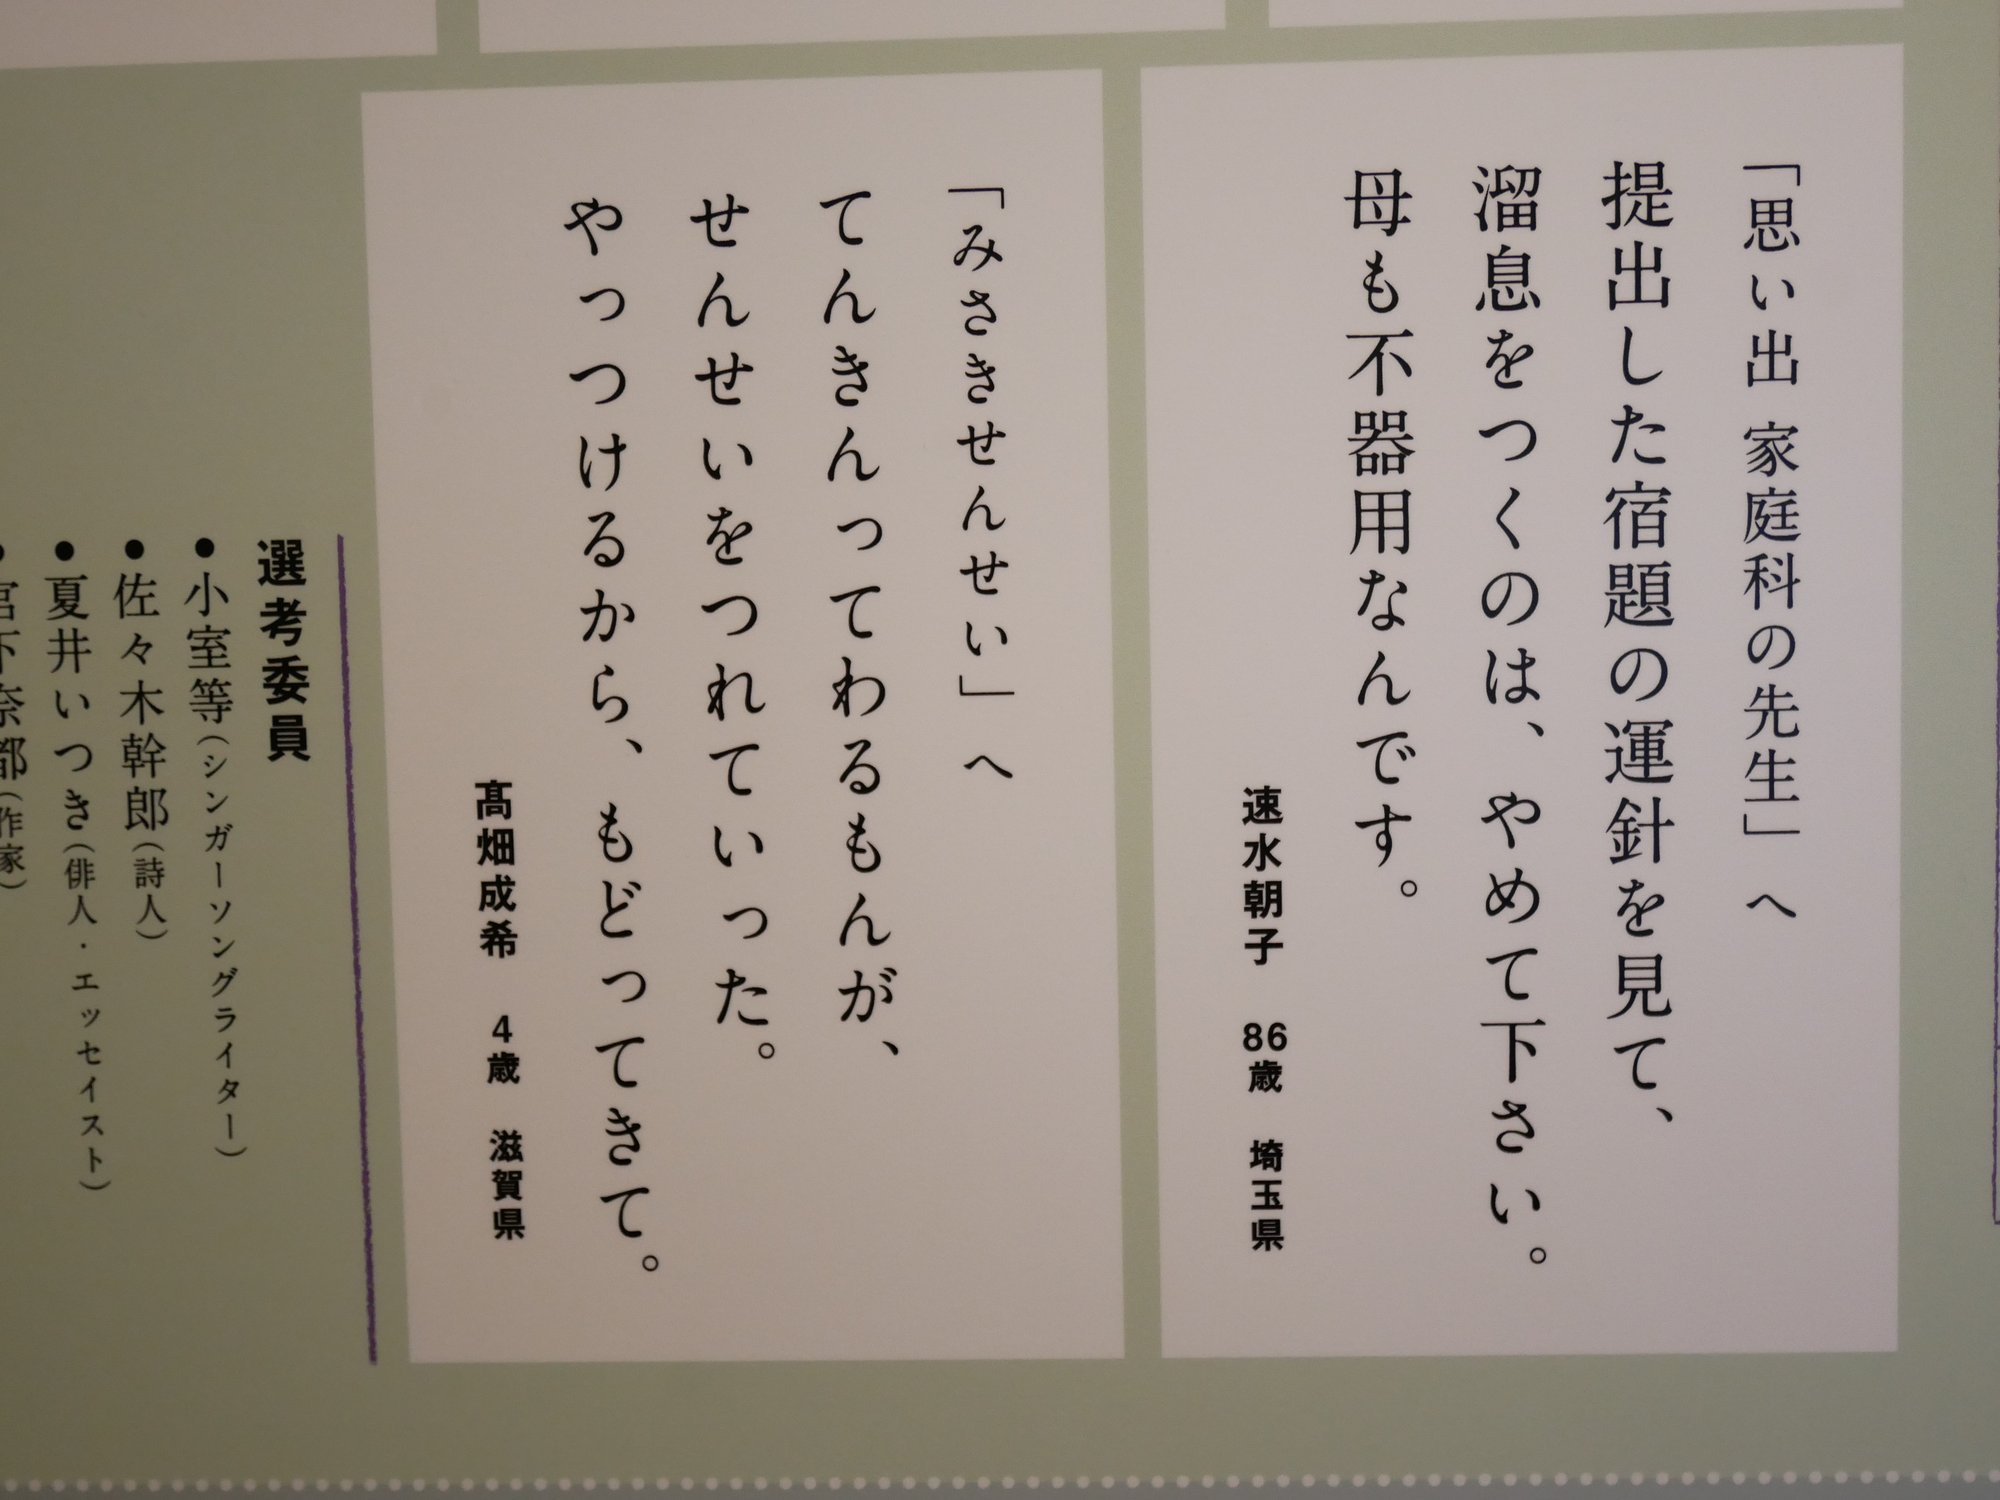 「思い出 家庭科の先生」へ
提出した宿題の運針を見て、
溜息をつくのは、やめて下さい。
母も不器用なんです。
速水朝子 86歳 埼玉県
「みさきせんせい」へ
てんきんってわるもんが、
せんせいをつれていった。
やっつけるから、もどってきて。
髙畑成希 4歳 滋賀県
選考委員
●小室等（シンガーソングライター）
●佐々木幹郎（詩人）
●夏井いつき（俳人・エッセイスト）
●宮下奈都（作家）